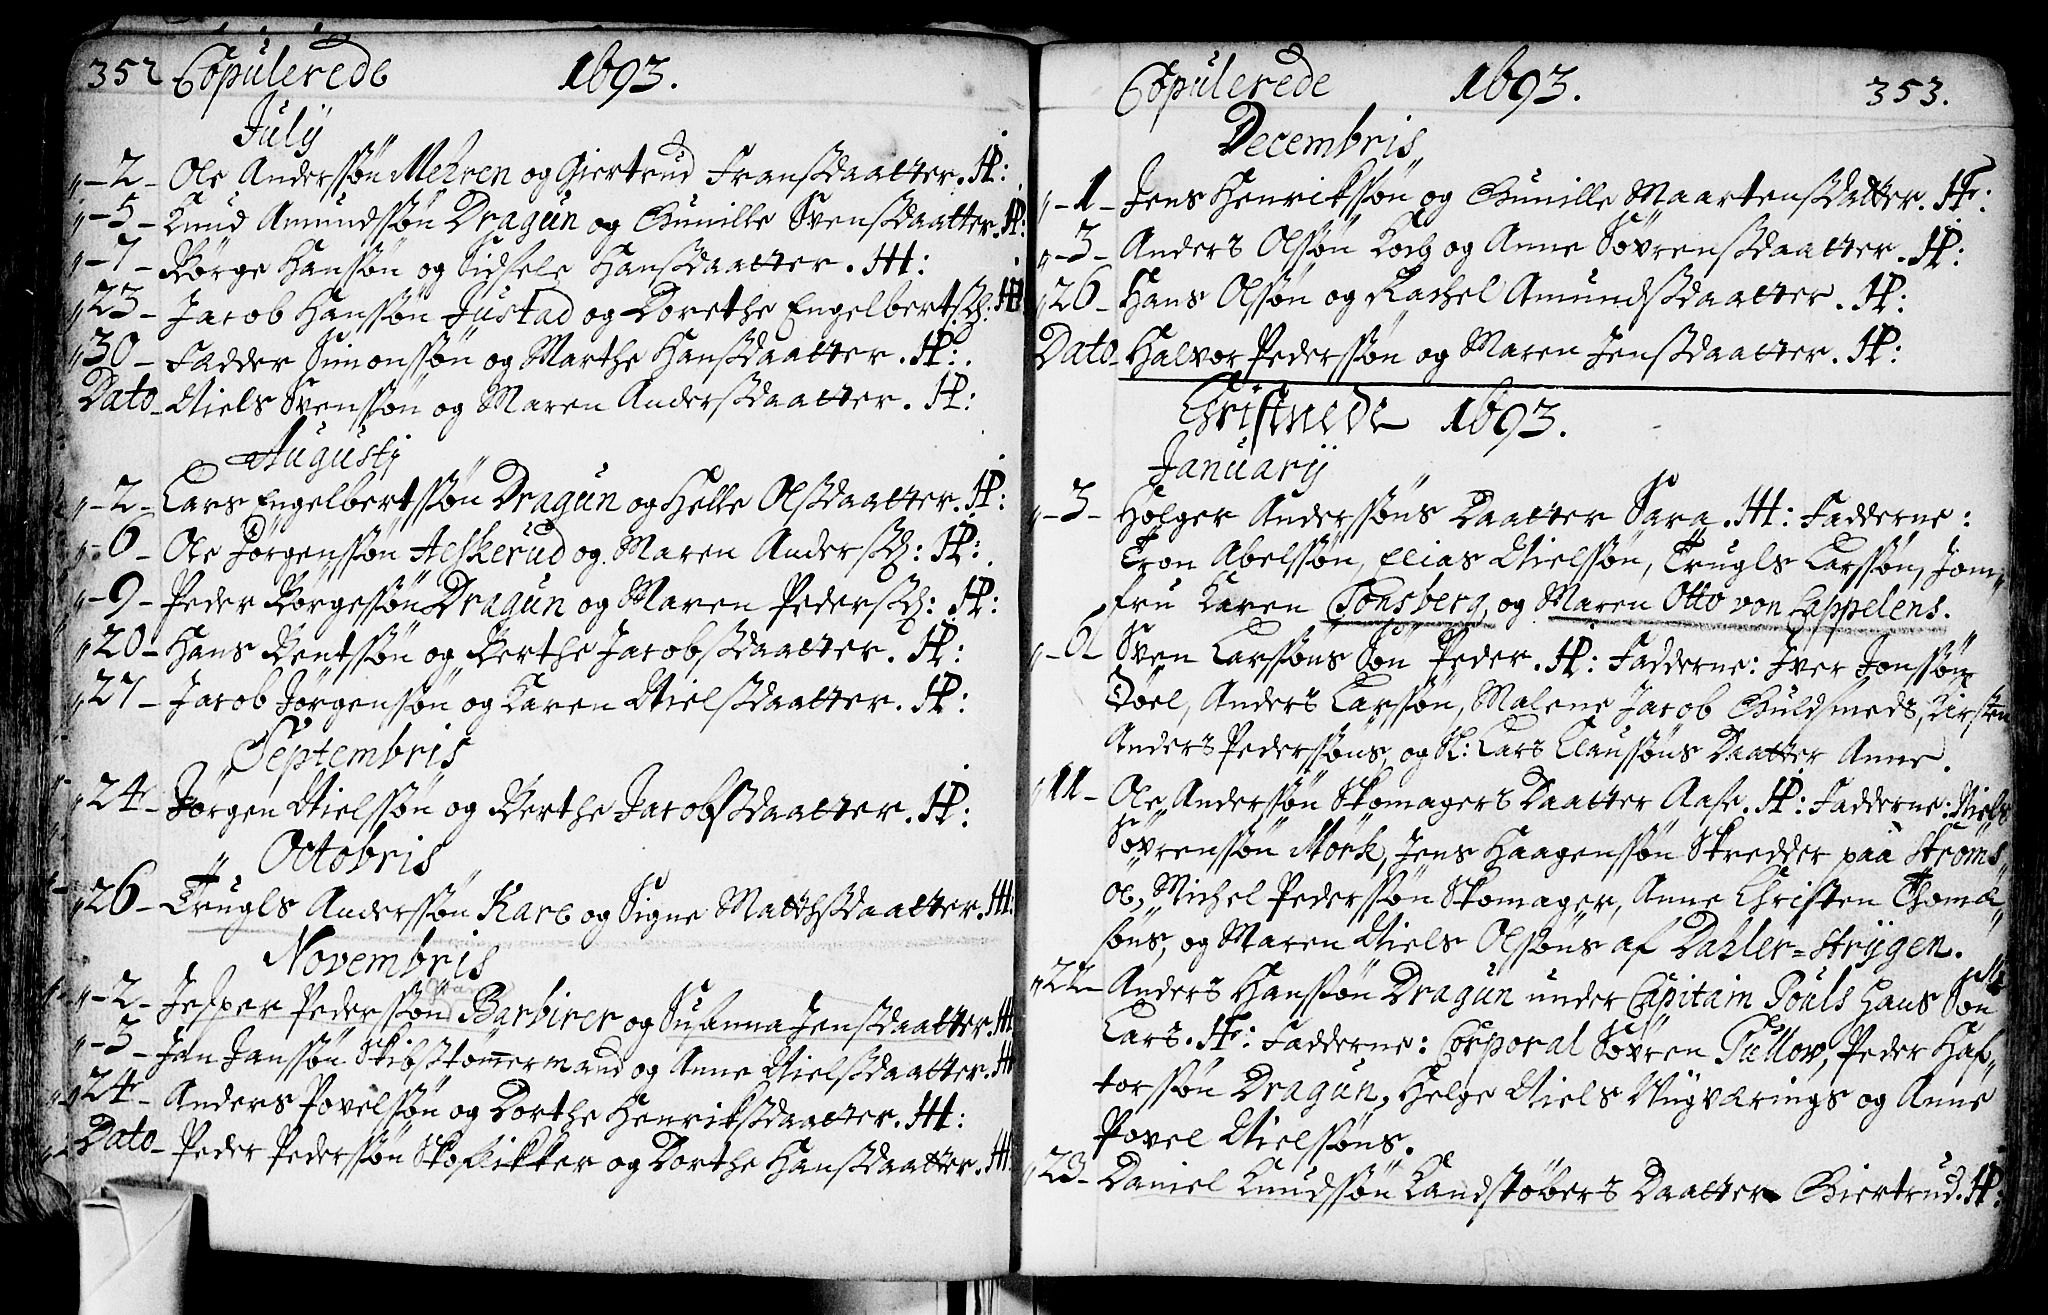 352 Copulerede 1693.
July
"-2- Ole Anderssøn Mehren og Giertrud Fransdaatter. HP:
"-5- Knud Amundssøn Dragun og Gunille Svensdaatter. HP:
"-7- Børge Hanssøn og Sidsele Hansdaatter. HH:
"23- Jacob Hanssøn Justad og Dorethe Engelbertsd: HH
"30- Fadder Simonssøn og Marthe Hansdaatter. HP:
Dato- Niels Svenssøn og Maren Andersdaatter. HP:
Augustj
"-2- Lars Engelbertssøn Dragun og Helle Olsdaatter. HP:
"-6- Ole Jørgenssøn Aeskerud og Maren Andersd: HP:
"-9- Peder Børgesøn Dragun og Maren Pedersd: HP:
"20- Hans Bentssøn og Berthe Jacobsdaatter. HP:
"27- Jacob Jørgensøn og Karen Nielsdaatter. HP:
Septembris
"24- Jørgen Nielssøn og Berthe Jacobsdaatter. HP:
Octobris
"26- Trugls Anderssøn Kare og Signe Matthsdaatter. HH:
Novembris
"-2- Jesper Pederssøn Barbirer og Susanna Jensdaatter. HH
"-3- Jan Janssøn Skibstømermand og Anne Nielsdaatter. HH
"24- Anders Povelssøn og Dorthe Henriksdaatter. HH:
Dato- Peder Pederssøn Skoflikker og Dorthe Hansdaatter. HH
Copulerede 1693. 353.
Decembris
"-1- Jens Henrikssøn og Gunille Maartensdatter. HF:
"-3- Anders Olssøn Koch og Anne Søvrensdaatter. HP:
"26- Hans Olssøn og Rachel Amundsdaatter. HP:
Dato- Halvor Pederssøn og Maren Jensdaatter. HP:
Christnede 1693.
Januarij
"-3- Holger Anderssøns Daatter Sara. HH: Fadderne:
Tron Abelssøn, Elias Nielssøn, Trugls Larssøn, Jom"
fru Karen Tonsberg, og Maren Otto von Cappelens.
"-6- Sven Larssøns Søn Peder. HP: Fadderne: Iver Jonssøn
Døel, Anders Larssøn, Malene Jacob Guldsmeds, Kirsten
Anders Pederssøns, og Sl: Lars Claussøns Daatter Anne.
"11- Ole Anderssøn Skomagers Daatter Aase. HP: Fadderne: Niels
Søvrenssøn Mørk, Jens Haagenssøn Skredder paa Strøms"
øe, Michel Pederssøn Skomager, Anne Christen Thomæ"
søns, og Maren Niels Olssøns af Dahler=Strygen.
"22- Anders Hanssøn Dragun under Capitain Pouls Hans Søn
Lars. HF: Fadderne: Corporal Søvren Tullov, Peder Haf"
torssøn Dragun, Helge Niels Nygværings og Anne
Povel Nielssøns.
"23- Daniel Knudssøn Kandstøbers Daatter Giertrud. HP: